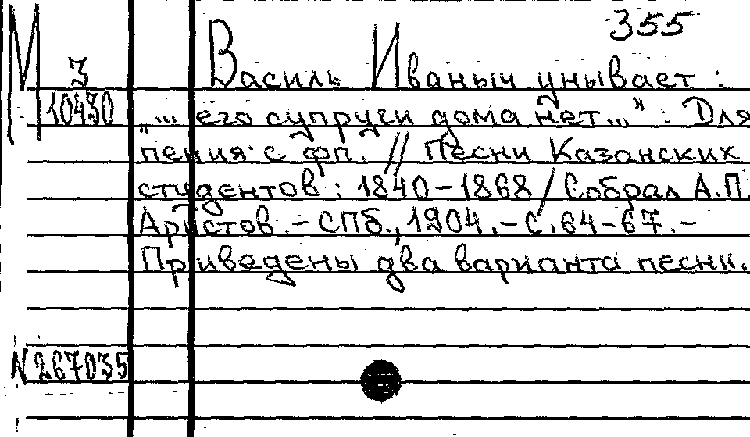 355
М 3
10430
Василь Иваныч унывает :
"... его супруги дома нет..." : Для
пения с фп. // Песни Казанских
студентов : 1840-1868 / Собрал А.П.
Аристов. - СПб., 1904. - С. 64-67. -
Приведены два варианта песни.
N267035